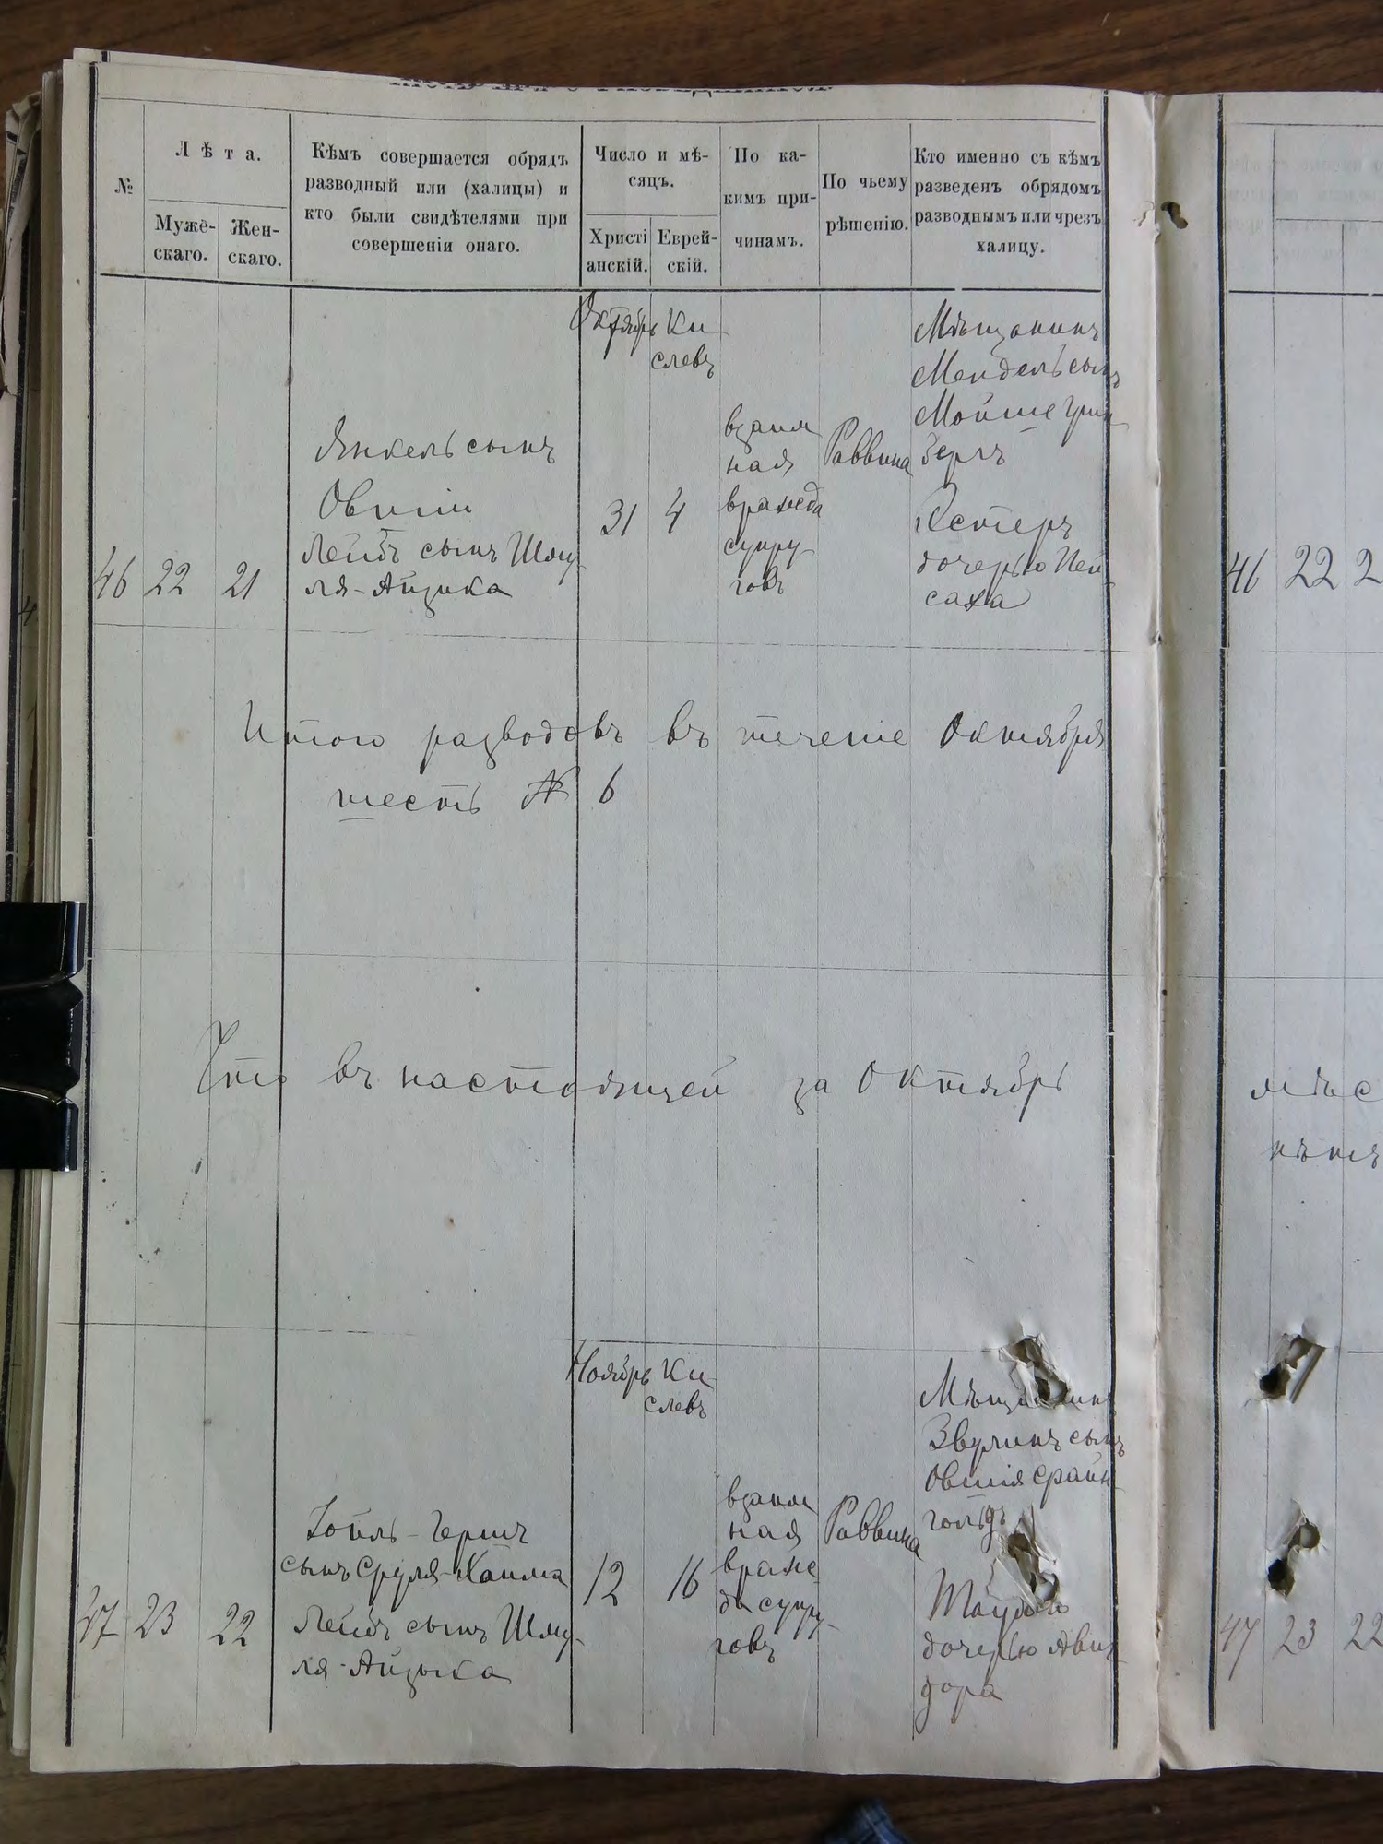 №
Лѣта.
Мужескаго.
Женскаго.
Кѣмъ совершается обрядъ
разводный или (халицы) и
кто были свидѣтелями при
совершеніи онаго.
Число и мѣ-
сяцъ.
Христі
анскій.
Еврей-
скій.
По ка-
кимъ при-
чинамъ.
По чьему
рѣшенію.
Кто именно съ кѣмъ
разведенъ обрядомъ
разводнымъ или чрезъ
халицу.
46
22
21
Янкель сынъ
Овшии
Лейбъ сынъ Шму-
ля-Айзика
Октябрь
31
Ки
слевъ
4
взаим
ная
вражда
супру-
говъ
Раввина
Мѣщанинъ
Мендель сынъ
Мойше
Эстеръ
дочерью Пей
саха
Итого разводовъ въ течение Октября
шесть № 6
Что въ настоящей за Октябрь
47
23
22
сынъ Сруля-Хаима
Лейбъ сынъ Шму-
ля-Айзика
Ноябрь
12
Ки
слевъ
16
взаим
ная
враж
да супру-
говъ
Раввина
сынъ
Овшія
гольдъ
дочерью Авиг
дора
46 22 2
мѣс
47 23 22